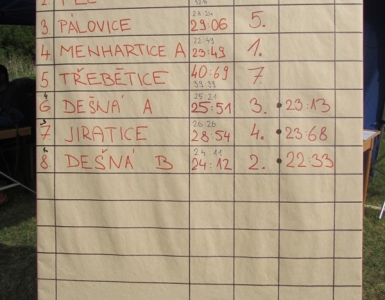 3 PÁLOVICE 29:06 5.
22:49
4 MENHARTICE A 23:49 1.
5 TŘEBĚTICE 40:69 7
39:99
25:21
6 DEŠNÁ A 25:51 3. 23:13
26:26
7 JIRATICE 28:54 4. 23:68
24:11
8 DEŠNÁ B 24:12 2. 22:33